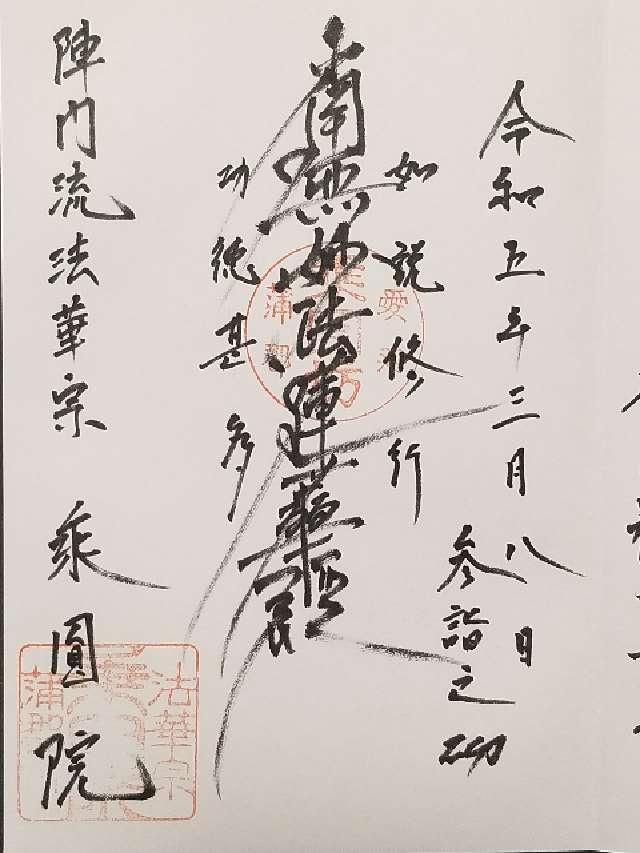 令和五年三月八日
参詣之砌
如説修行
南無妙法蓮華経
功徳甚多
陣門流法華宗 乗圓院
愛
蒲郡
法華宗
蒲郡